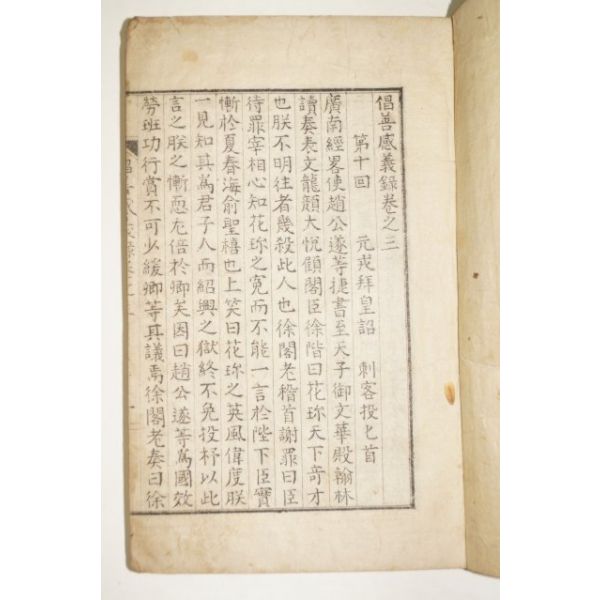 倡善感義錄卷之三
第十回　元戎拜皇詔　刺客投匕首
廣南經畧使趙公遂等捷書至天子御文華殿翰林
讀奏表文龍顔大悅顧閣臣徐階曰花珎天下奇才
也朕不明往者幾殺此人也徐閣老稽首謝罪曰臣
待罪宰相心知花珎之寃而不能一言於陛下臣實
慚於夏春海俞聖禧也上笑曰花珎之英風偉度朕
一見知其爲君子人而紹興之獄終不免投杼以此
言之朕之慚恧尤倍於卿矣因曰趙公遂等爲國效
勞班功行賞不可少緩卿等其議焉徐閣老奏曰徐